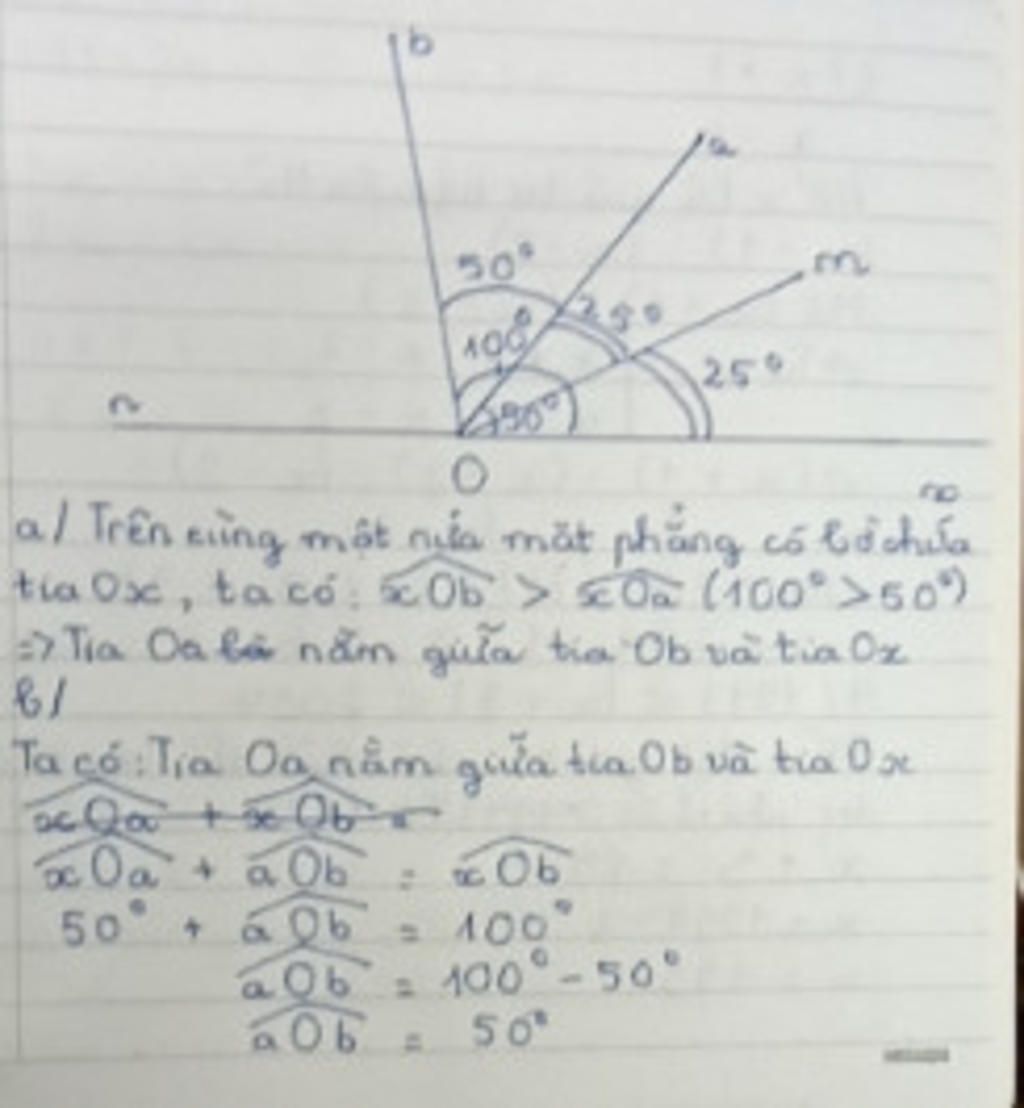 b
a
m
50°
25°
100°
25°
50°
n
O
x
a/ Trên cùng một nửa mặt phẳng có bờ chứa
tia Ox, ta có: xOb > xOa (100° > 50°)
=> Tia Oa nằm giữa tia Ob và tia Ox
b/
Ta có: Tia Oa nằm giữa tia Ob và tia Ox
xOa + xOb =
xOa + aOb = xOb
50° + aOb = 100°
aOb = 100° - 50°
aOb = 50°